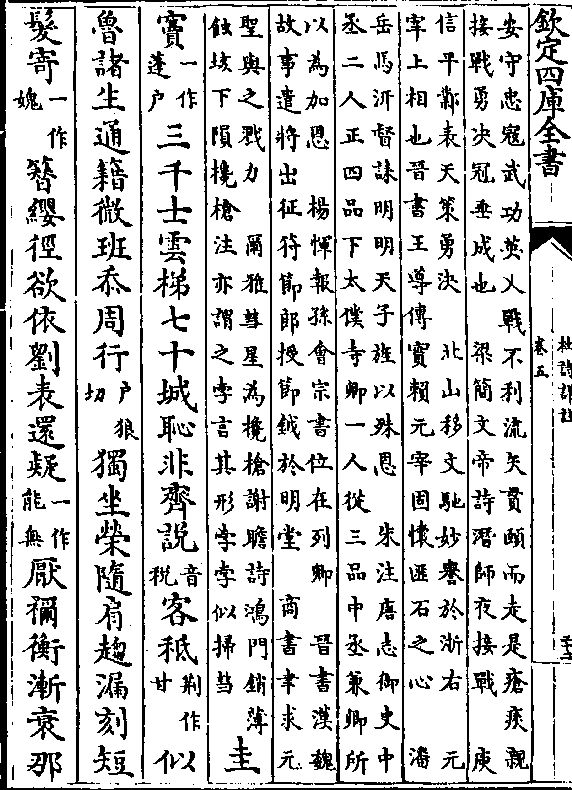 欽定四庫全書
杜詩詳註
卷五
安守忠寇武功英乂戰不利流矢貫頤而走是瘡痍親
接戰勇决冠垂成也　梁簡文帝詩潛師夜接戰　庾
信平鄴表天策勇決　北山移文馳妙譽於浙右　元
宰上相也晉書王導傳實賴元宰固懷匪石之心　潘
岳馬汧督誄明明天子旌以殊恩　朱注唐志御史中
丞二人正四品下太僕寺卿一人從三品中丞兼卿所
以為加恩　楊惲報孫會宗書位在列卿　晉書漢魏
故事遣將出征符節郎授節鉞於明堂　商書聿求元
聖與之戮力　爾雅彗星為欃槍謝瞻詩鴻門銷薄
蝕垓下隕欃槍注亦謂之孛言其形孛孛似掃彗
圭
竇一作蓬户三千士雲梯七十城恥非齊説音税客秪荆作甘似
魯諸生通籍微班忝周行户狼切獨坐榮隨肩趨漏刻短
髮寄一作媿簪纓徑欲依劉表還疑一作能無厭禰衡漸衰那